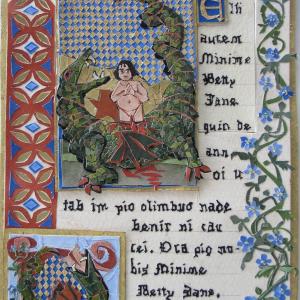 Elh
autem
Minime
Betty
Jane.
quin de
ann
oi u
tab im pio olimbuo nade
benir ni cau
cei. Ora pio no
bis Minime
Betty Jane.